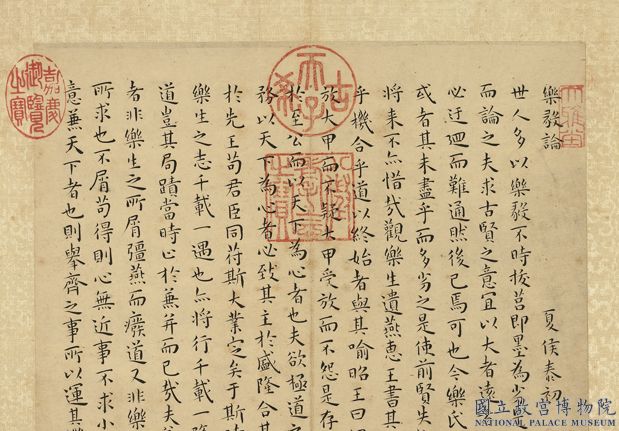 樂毅論
夏侯泰初
世人多以樂毅不時拔莒即墨為劣
而論之夫求古賢之意宜以大者遠
必迂迴而難通然後已焉可也今樂氏
或者其未盡乎而多劣之是使前賢失
將来不亦惜哉觀樂生遺燕惠王書其
乎機合乎道以終始者與其喻昭王曰
放大甲而不疑大甲受放而不怨是存
於至公而以天下為心者也夫欲極道之
務以天下為心者必致其主於盛隆合其
於先王苟君臣同符斯大業定矣于斯
樂生之志千載一遇也亦將行千載一隆
道豈其局蹟當時止於兼并而已哉夫
者非樂生之所屑彊燕而廢道又非樂
所求也不屑苟得則心無近事不求小
意兼天下者也則舉齊之事所以運其
古希天子
八徵耄念之寶
嘉慶御覽之寶
國立故宮博物院
NATIONAL PALACE MUSEUM